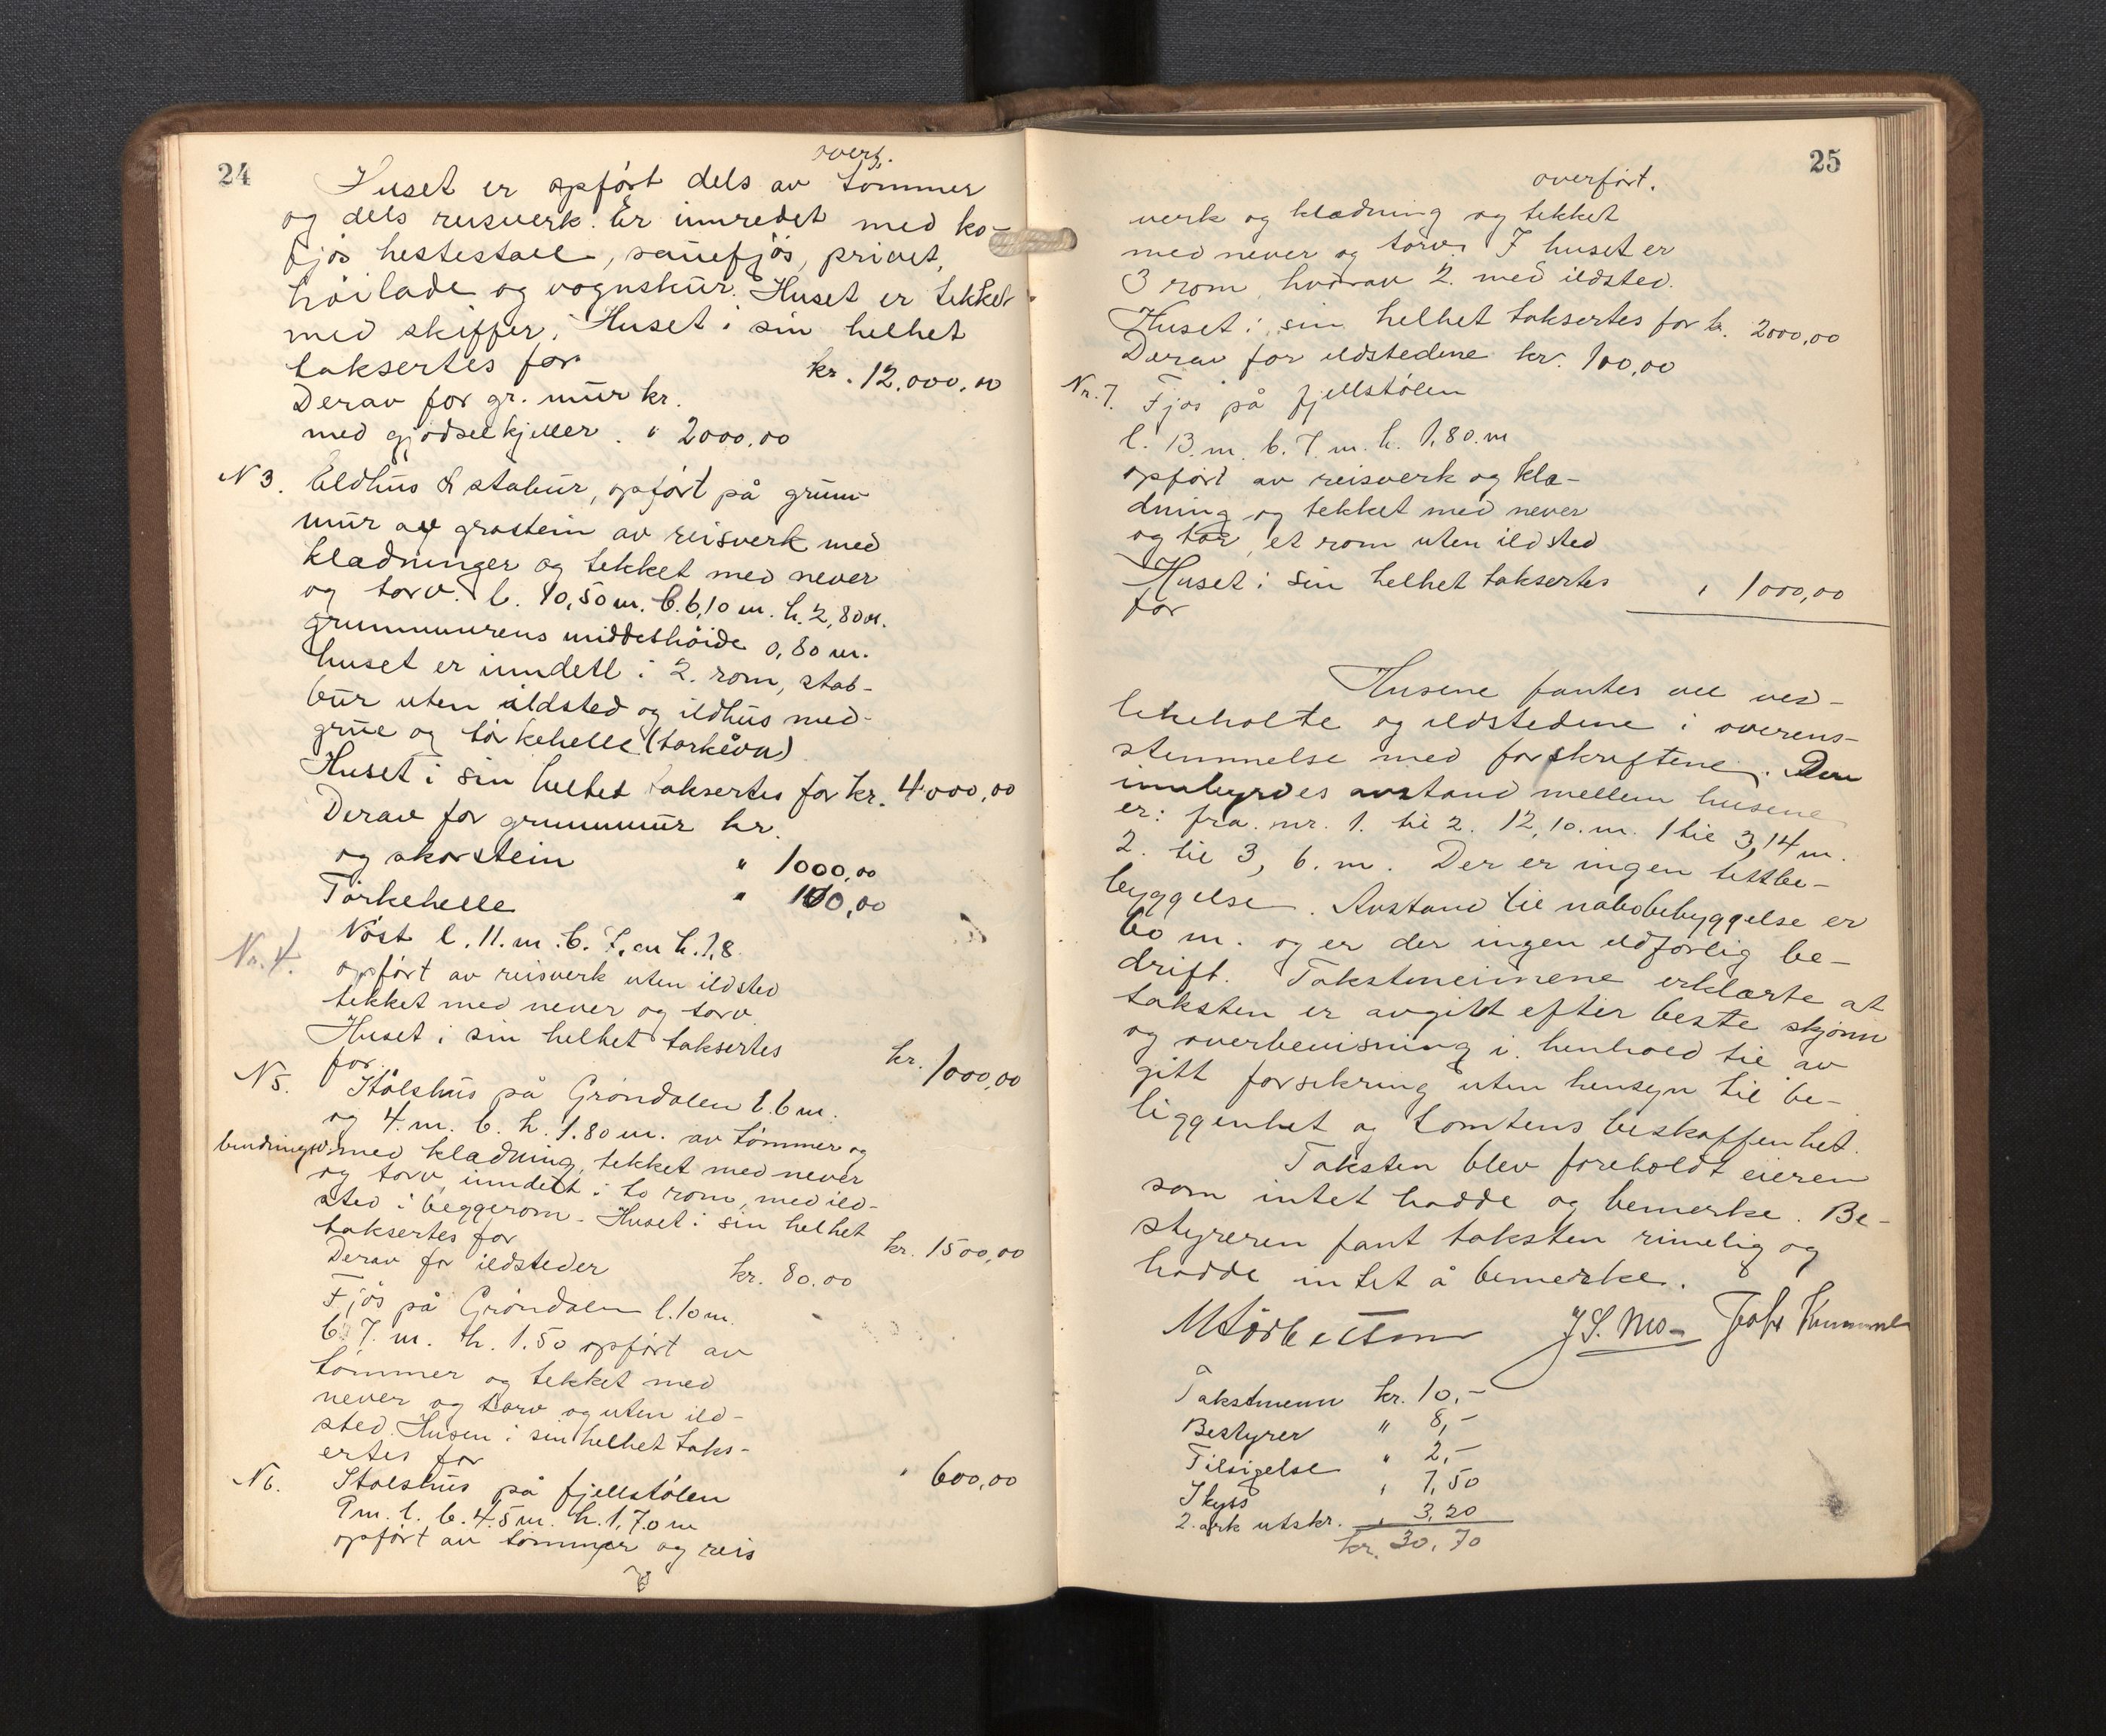 24
overf.
Huset er opført dels av tømmer
og dels reisverk. Er innredet med ko-
fjøs hestestall, sauefjøs, privet,
høilade og vognskur. Huset er tekket
med skiffer. Huset i sin helhet
taksertes for kr. 12.000,00
Derav for gr. mur kr.
med gjødselkjeller. " 2000,00
N 3. Eldhus & stabur, opført på grunn
mur av gråstein av reisverk med
klædninger og tekket med never
og torv. l. 10,50 m. b. 6,10 m. h. 2,80 m.
grunnmurens middelshøide 0,80 m.
huset er inndelt i 2. rom, stab-
bur uten ildsted og ildhus med
grue og tørkehelle (torkåvn)
Huset i sin helhet taksertes for kr. 4000,00
Derav for grunnmur kr.
og skorstein " 1000,00
Tørkehelle " 100,00
Nr. 4. Nøst l. 11. m. b. 7. m h. 1,8
opført av reisverk uten ildsted
tekket med never og torv.
Huset i sin helhet taksertes
for kr. 1000,00
N 5. Stølshus på Grøndalen l. 6 m.
og 4. m. b. h. 1.80 m. av tømmer og
bindingsv. med klædning, tekket med never
og torv, inndelt i to rom, med ild-
sted i beggerom. Huset i sin helhet
taksertes for kr. 1500,00
Derav for ildsteder kr. 80.00
Fjøs på Grøndalen l. 10 m.
b. 7. m. h. 1.50 opført av
tømmer og tekket med
never og torv og uten ild-
sted. Husen i sin helhet taks-
ertes for " 600,00
N 6. Stølshus på fjellstølen
9 m. l. b. 4.5 m. h. 1,70 m
opført av tømmer og reis
25
overført.
verk og klædning og tekket
med never og torv. I huset er
3 rom hvorav 2. med ildsted.
Huset i sin helhet taksertes for kr. 2000,00
Derav for ildstedene kr. 100,00
Nr. 7. Fjøs på fjellstølen
l. 13. m. b. 7. m. h. 1,80. m
opført av reisverk og klæ-
dning og tekket med never
og tor, et rom uten ildsted
Huset i sin helhet taksertes " 1000,00
for
Husene fantes vel ved-
likeholte og ildstedene i overens-
stemmelse med forskriftene. Den
innbyrdes avstand mellem husene
er: fra. nr. 1. til 2. 12,10. m. 1 til 3, 14 m.
2. til 3, 6. m. Der er ingen tettbe-
byggelse. Avstand til nabobebyggelse er
60 m. og er der ingen ildfarlig be-
drift. Takstmennene erklærte at
taksten er avgitt efter beste skjønn
og overbevisning i henhold til av
gitt forsikring uten hensyn til be-
liggenhet og tomtens beskaffenhet.
Taksten blev foreholdt eieren
som intet hadde og bemerke. Be-
styreren fant taksten rimelig og
hadde intet å bemerke.
J S. Mo
Takstmenn kr. 10,-
Bestyrer " 8,-
Tilsigelse " 2,-
Skyss " 7,50
2. ark utskr. " 3,20
kr. 30,70